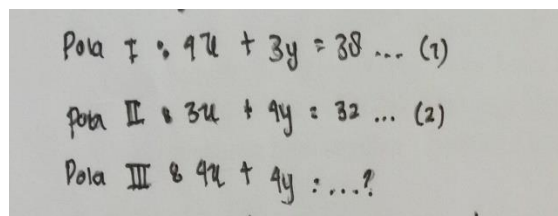 Pola I : 4x + 3y = 38 ... (1)
Pola II : 3x + 4y = 32 ... (2)
Pola III : 4x + 4y = ...?